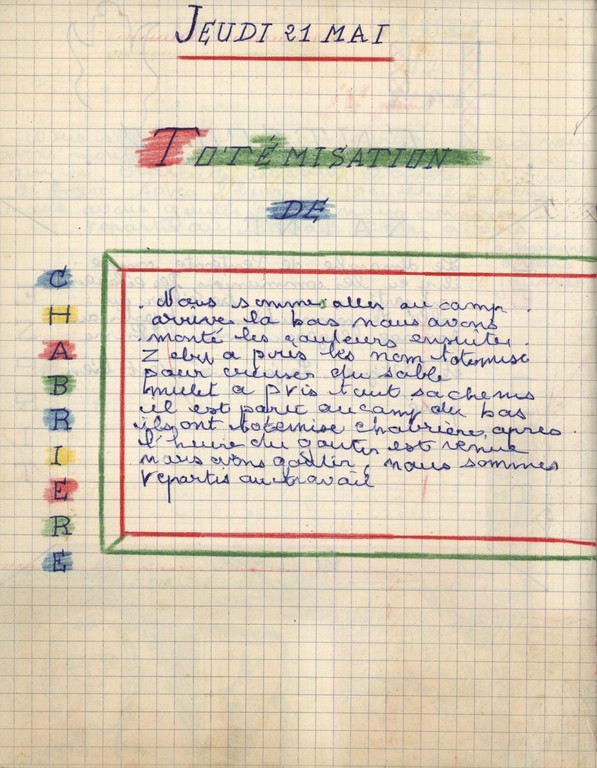 JEUDI 21 MAI
TOTÉMISATION
DE
CHABRIERE
Nous sommes aller au camp.
arrivé la bas nous avons
monté les gauleurs ensuite.
Zebu a pris les nom totemisé
pour creuser du sable
mulet a pris tout sachems
il est parti au camp du bas
ils ont totemise chabrière, après.
l'heure du gouter est venue
nous avons goûter, nous sommes
repartis au travail